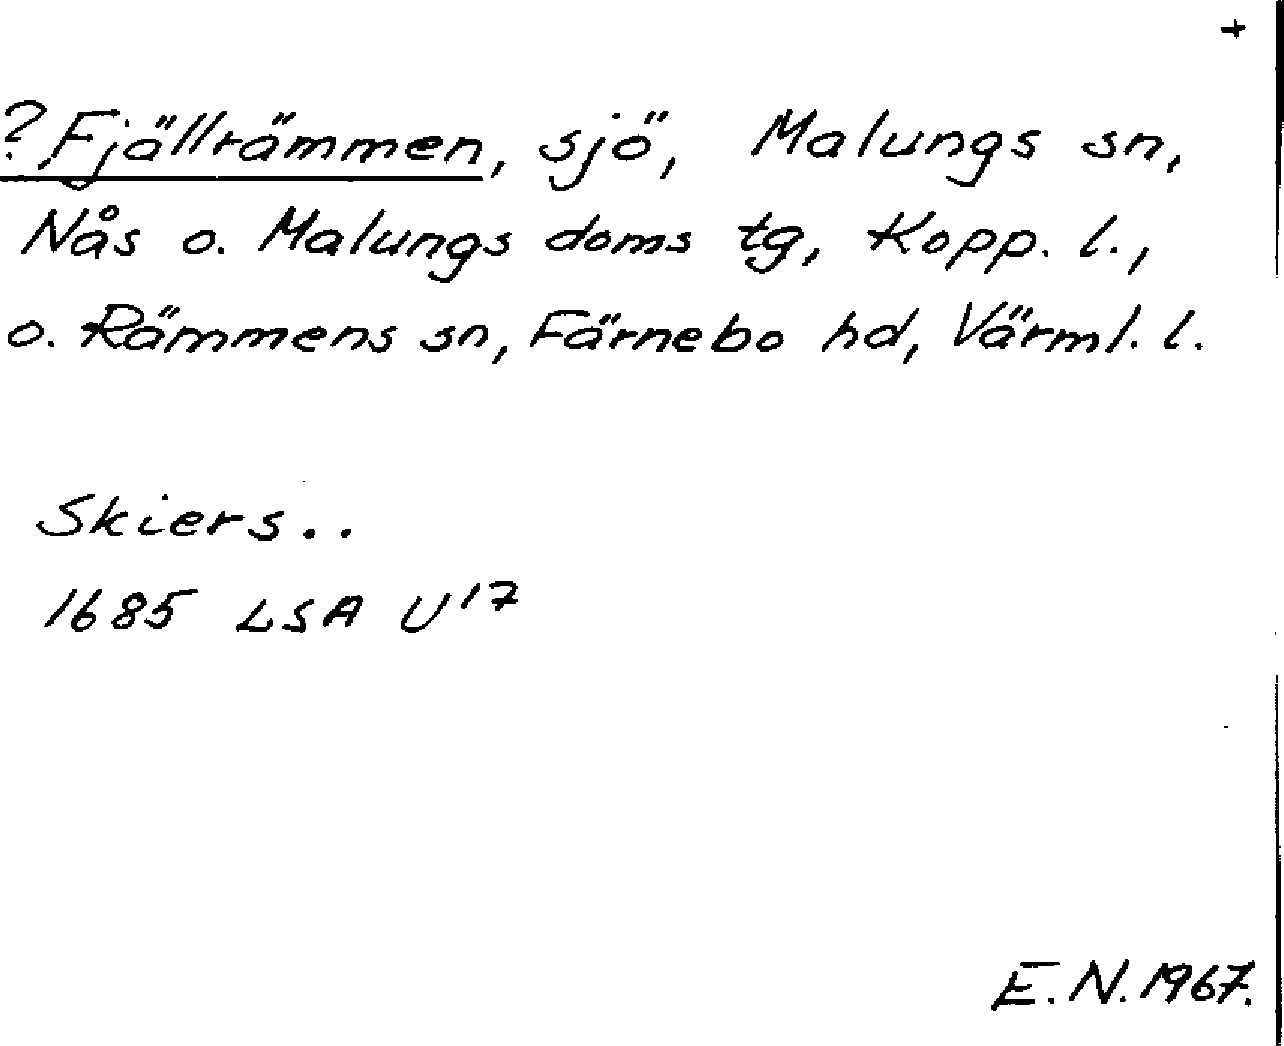 +
?Fjällrämmen, sjö, Malungs sn,
Nås o. Malungs doms tg, Kopp. l.,
o. Rämmens sn, Färnebo hd, Värml. l.
Skiers..
1685 LSA U¹⁷
E.N. 1967.